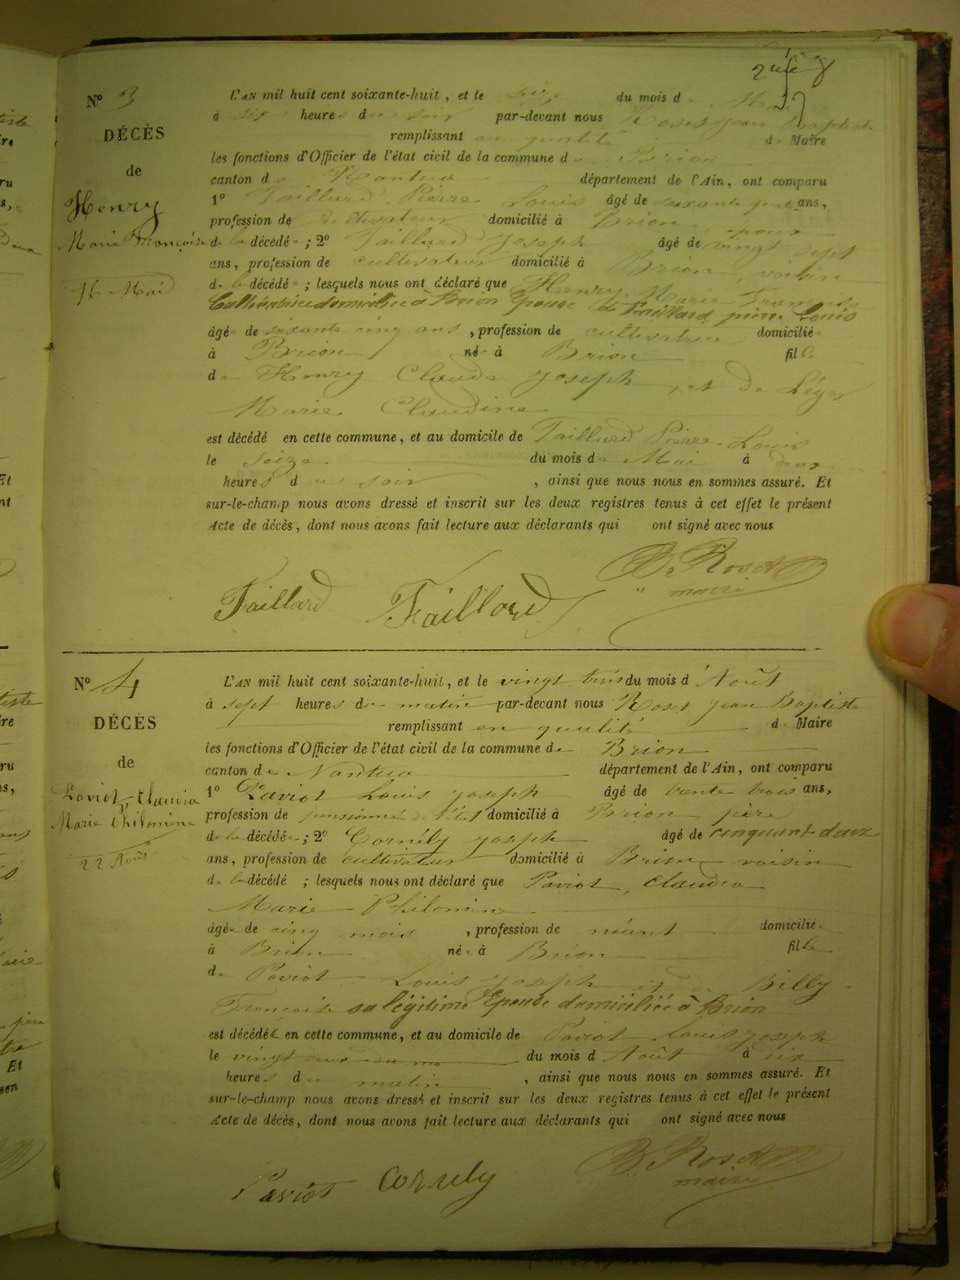 N° 3
DÉCÈS
de
Henry
Marie Françoise
16 Mai
L'AN mil huit cent soixante-huit, et le seize du mois d Mai
à sept heures du soir par-devant nous Roset Jean Baptiste
remplissant en qualité de Maire
les fonctions d'Officier de l'état civil de la commune de Brion
canton de Nantua département de l'Ain, ont comparu
1° Taillard Pierre Louis âgé de soixante ans,
profession de cultivateur domicilié à Brion époux
de la décédée ; 2° Taillard Joseph âgé de vingt sept
ans, profession de cultivateur domicilié à Brion, voisin
de la décédée ; lesquels nous ont déclaré que Henry Marie Françoise
Cultivatrice domiciliée à Brion Epouse de Taillard pierre Louis
âgée de soixante cinq ans, profession de cultivatrice domiciliée
à Brion née à Brion fille
de Henry Claude Joseph et de Léger
Marie Claudine
est décédé en cette commune, et au domicile de Taillard Pierre Louis
le seize du mois de Mai à deux
heures du soir, ainsi que nous nous en sommes assuré. Et
sur-le-champ nous avons dressé et inscrit sur les deux registres tenus à cet effet le présent
Acte de décès, dont nous avons fait lecture aux déclarants qui ont signé avec nous
Taillard Taillard B. Roset
maire
N° 4
DÉCÈS
de
Paviot, Claudia
Marie Philomine
22 Août
L'AN mil huit cent soixante-huit, et le vingt trois du mois d'Août
à sept heures du matin par-devant nous Roset Jean Baptiste
remplissant en qualité de Maire
les fonctions d'Officier de l'état civil de la commune de Brion
canton de Nantua département de l'Ain, ont comparu
1° Paviot Louis Joseph âgé de trente trois ans,
profession de pensionné de l'état domicilié à Brion père
de la décédée ; 2° Cornély Joseph âgé de cinquant deux
ans, profession de cultivateur domicilié à Brion voisin
de la décédé ; lesquels nous ont déclaré que Paviot, Claudia
Marie Philomine
âgée de cinq mois, profession de néant domicilié
à Brion née à Brion fille
de Paviot Louis Joseph et de Billy
Françoise sa légitime Epouse domiciliée à Brion
est décédée en cette commune, et au domicile de Paviot Louis Joseph
le vingt deux du mois d'Août à six
heures du matin, ainsi que nous nous en sommes assuré. Et
sur-le-champ nous avons dressé et inscrit sur les deux registres tenus à cet effet le présent
Acte de décès, dont nous avons fait lecture aux déclarants qui ont signé avec nous
Paviot Cornely B. Roset
maire